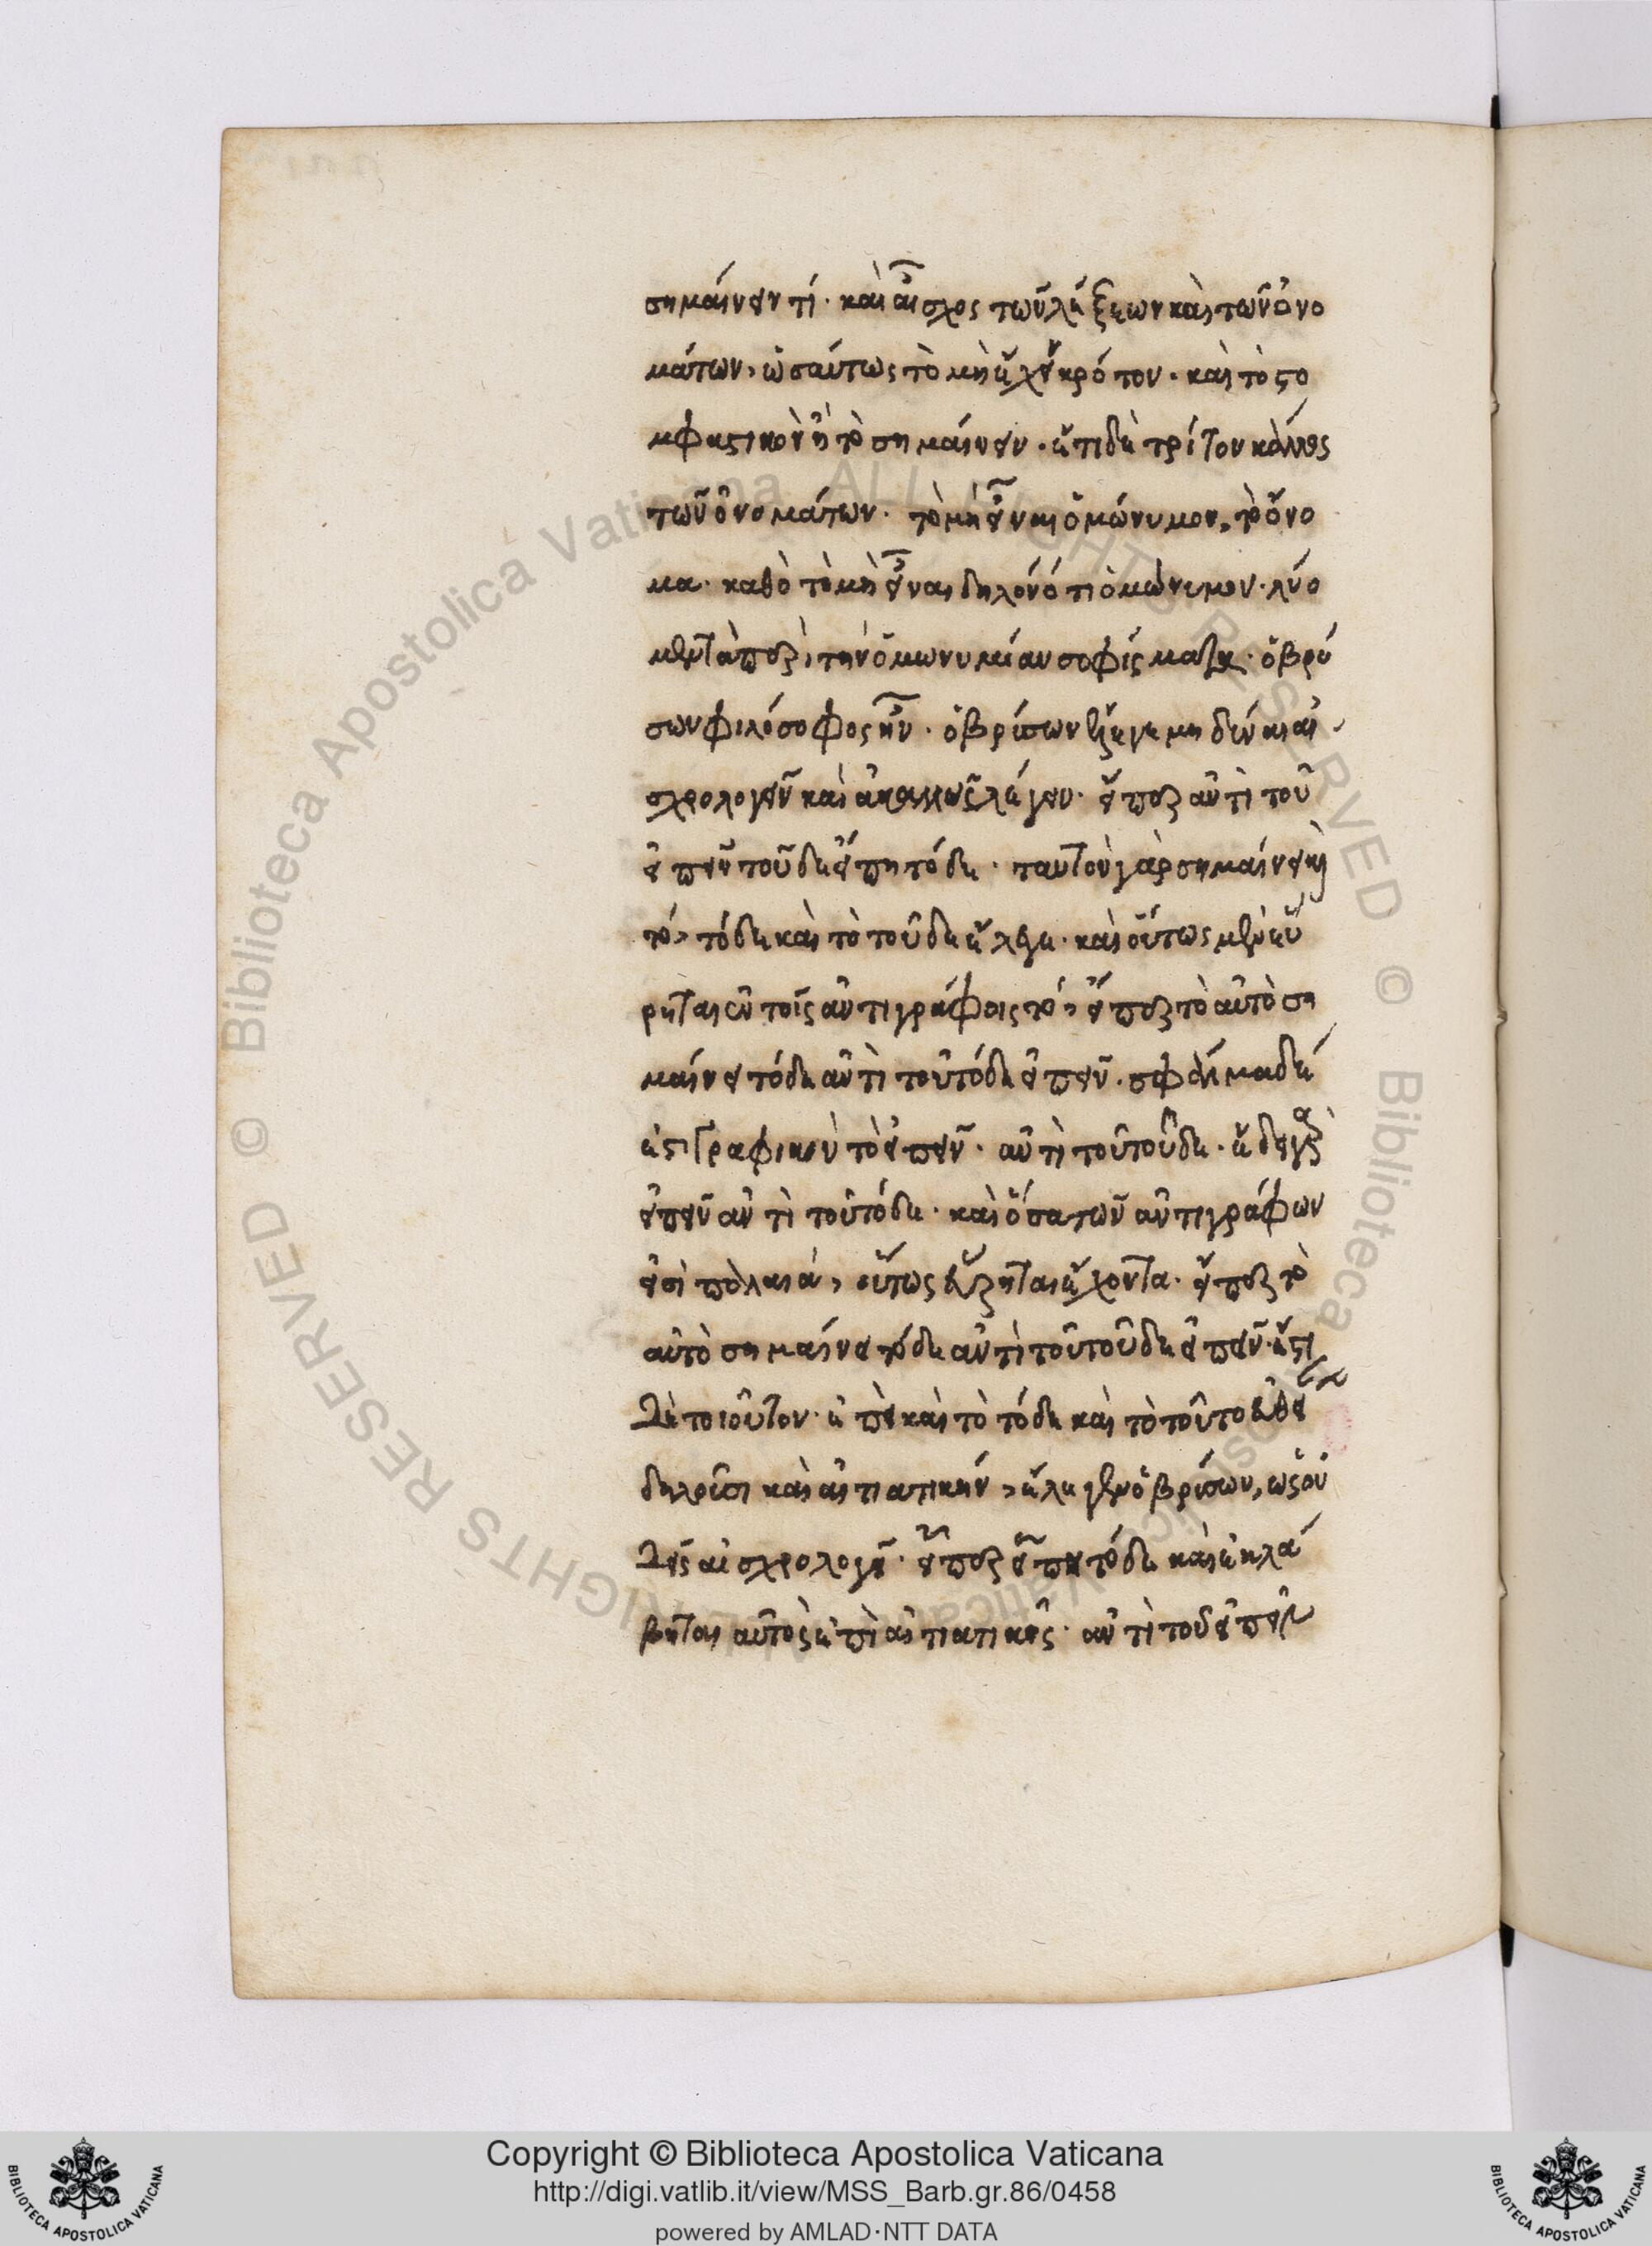 σημαίνειν τί· καὶ αἶσχος τῶν λέξεων καὶ τῶν ὀνο
μάτων, ὡσαύτως τὸ μὴ ἔχειν κρότον· καὶ τὸ ϛο
μφαϛικὸν ἢ τὸ σημαίνειν· ἔτι δὲ τρίτον κάλλος
τῶν ὀνομάτων· τὸ μὴ εἶναι ὁμώνυμον, τὸ ὄνο
μα· καθὸ τὸ μὴ εἶναι δηλονότι ὁμώνυμον· λύο
μεν τὰ παρὰ τὴν ὁμωνυμίαν σοφίσματα· ὁ βρύ
σων φιλόσοφος ἦν· ὁ βρύσων ἔλεγε μηδένα αἰ
σχρολογεῖν καὶ ἀκαλλῶς λέγειν· εἴπερ ἀντὶ τοῦ
εἰπεῖν τοῦδε εἴπῃ τόδε· ταυτὸν γὰρ σημαίνει καὶ
τό, τόδε καὶ τὸ τοῦδε ἔλεγε· καὶ οὕτως μὲν εὕ
ρηται ἐν τοῖς ἀντιγράφοις τό, εἴπερ τὸ αὐτὸ ση
μαίνει τόδε ἀντὶ τοῦ τόδε εἰπεῖν· σφάλμα δέ
ἐϛι γραφικὸν τὸ εἰπεῖν· ἀντὶ τοῦ τοῦδε·
εἰπεῖν ἀντὶ τοῦ τόδε· καὶ ὅσα τῶν ἀντιγράφων
εἰσὶ παλαιά, οὕτως εὕρηται ἔχοντα· εἴπερ τὸ
αὐτὸ σημαίνει τόδε ἀντὶ τοῦ τοῦδε εἰπεῖν· ἔϛι
δὲ τοιοῦτον· ἐπεὶ καὶ τὸ τόδε καὶ τὸ τοῦτο εὐθεῖ
δηλοῦσι καὶ αἰτιατικήν, ἔλεγεν ὁ βρύσων, ὡς οὐ
δεὶς αἰσχρολογεῖ· εἴπερ εἴπῃ τόδε καὶ ἐκλά
βηται αὐτὸς ἐπὶ αἰτιατικῆς· ἀντὶ τοῦ εἰπεῖν
Copyright © Biblioteca Apostolica Vaticana
http://digi.vatlib.it/view/MSS_Barb.gr.86/0458
powered by AMLAD·NTT DATA